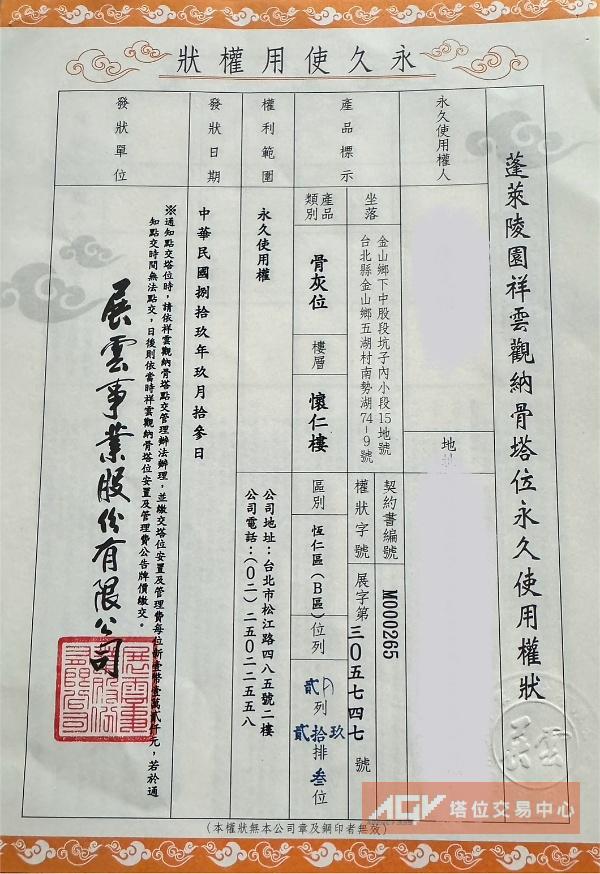 永久使用權狀
蓬萊陵園祥雲觀納骨塔位永久使用權狀
永久使用權人
地址
契約書編號
M000265
產品標示
坐落
金山鄉下中股段坑子內小段15地號
台北縣金山鄉五湖村南勢湖74-9號
權狀字號
展字第三0五七四七號
產品類別
骨灰位
樓層
懷仁樓
區別
恆仁區(B區)
位列
貳列
貳拾玖排叁位
權利範圍
永久使用權
公司地址：台北市松江路四八五號二樓
公司電話：(0二)二五0二二五五八
發狀日期
中華民國捌拾玖年玖月拾參日
發狀單位
※通知點交塔位時，請依祥雲觀納骨塔點交管理辦法辦理，並繳交塔位安置及管理費每位新壹幣壹萬貳仟元，若於通
知點交時間無法點交，日後則依當時祥雲觀納骨塔位安置及管理費公告牌價繳交。
展雲事業股份有限公司
展雲
(本權狀無本公司章及鋼印者無效)
AGV 塔位交易中心